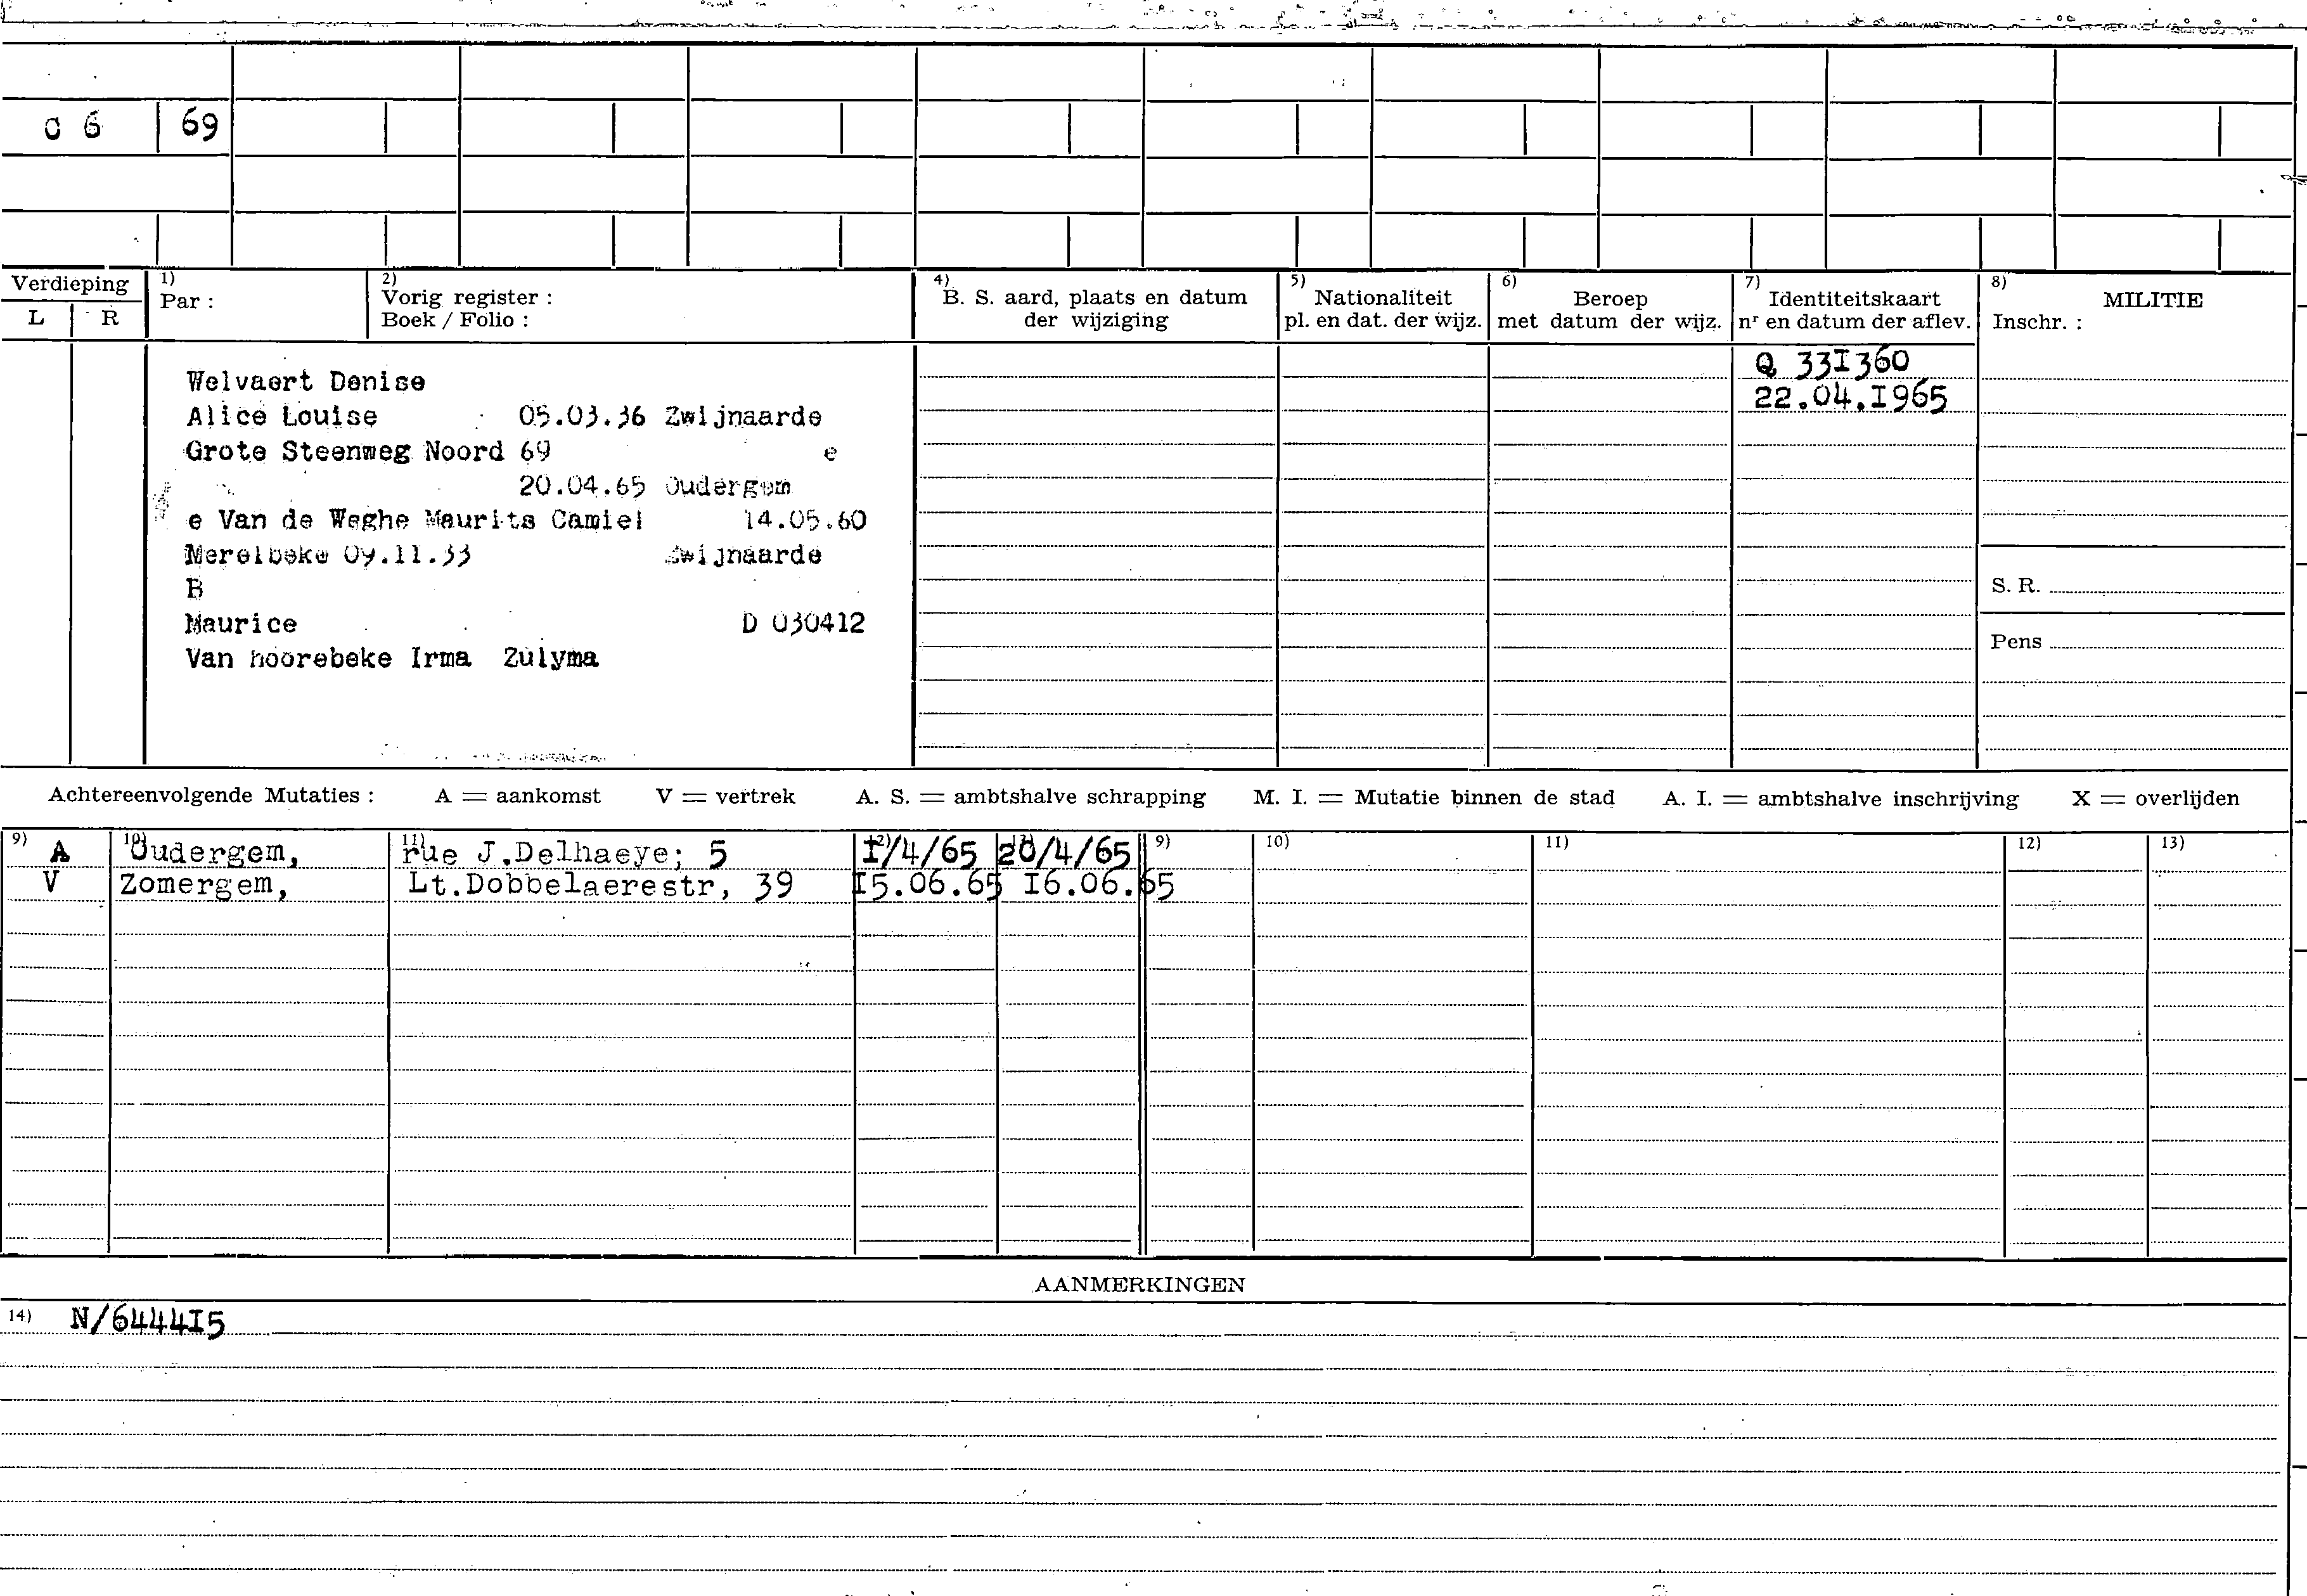 0 6 69
Verdieping
L R
1) Par :
2) Vorig register :
Boek / Folio :
4) B. S. aard, plaats en datum
der wijziging
5) Nationaliteit
pl. en dat. der wijz.
6) Beroep
met datum der wijz.
7) Identiteitskaart
nʳ en datum der aflev.
8) MILITIE
Inschr. :
Q 33I360
22.04.I965
Welvaert Denise
Alice Louise 05.03.36 Zwijnaarde
Grote Steenweg Noord 69 e
20.04.65 Oudergem
e Van de Weghe Maurits Camiel 14.05.60
Merelbeke 09.11.33 Zwijnaarde
B
Maurice D 030412
Van hoorebeke Irma Zulyma
S. R.
Pens
Achtereenvolgende Mutaties : A = aankomst V = vertrek A. S. = ambtshalve schrapping M. I. = Mutatie binnen de stad A. I. = ambtshalve inschrijving X = overlijden
9) 10) 11) 12) 13) 9) 10) 11) 12) 13)
A Oudergem, rue J.Delhaeye; 5 I/4/65 20/4/65
V Zomergem, Lt.Dobbelaerestr, 39 I5.06.65 I6.06.65
AANMERKINGEN
14) N/6444I5